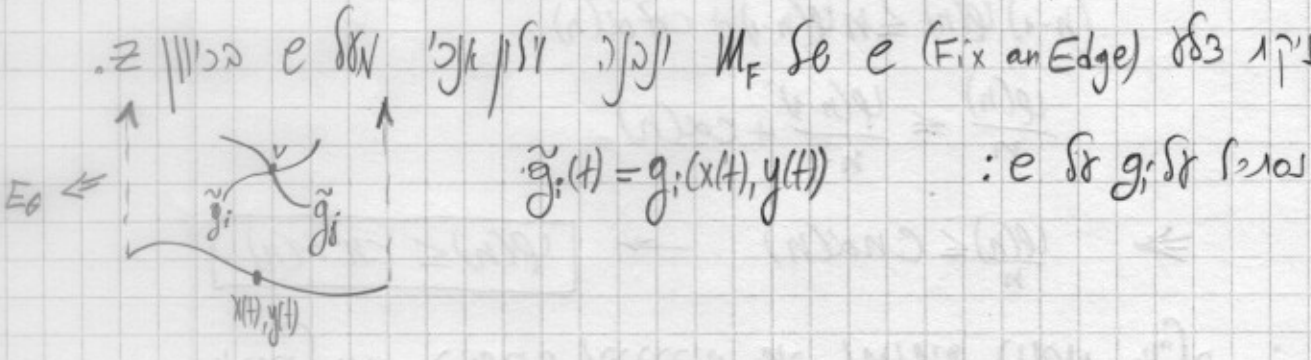 ניקח צלע (Fix an Edge) e של M_F ונבנה חלון אנכי מעל e בכיוון z.
נסתכל על g_i על e: g̃_i(t) = g_i(x(t), y(t))
E_G ⇐
v
g̃_i g̃_j
x(t), y(t)